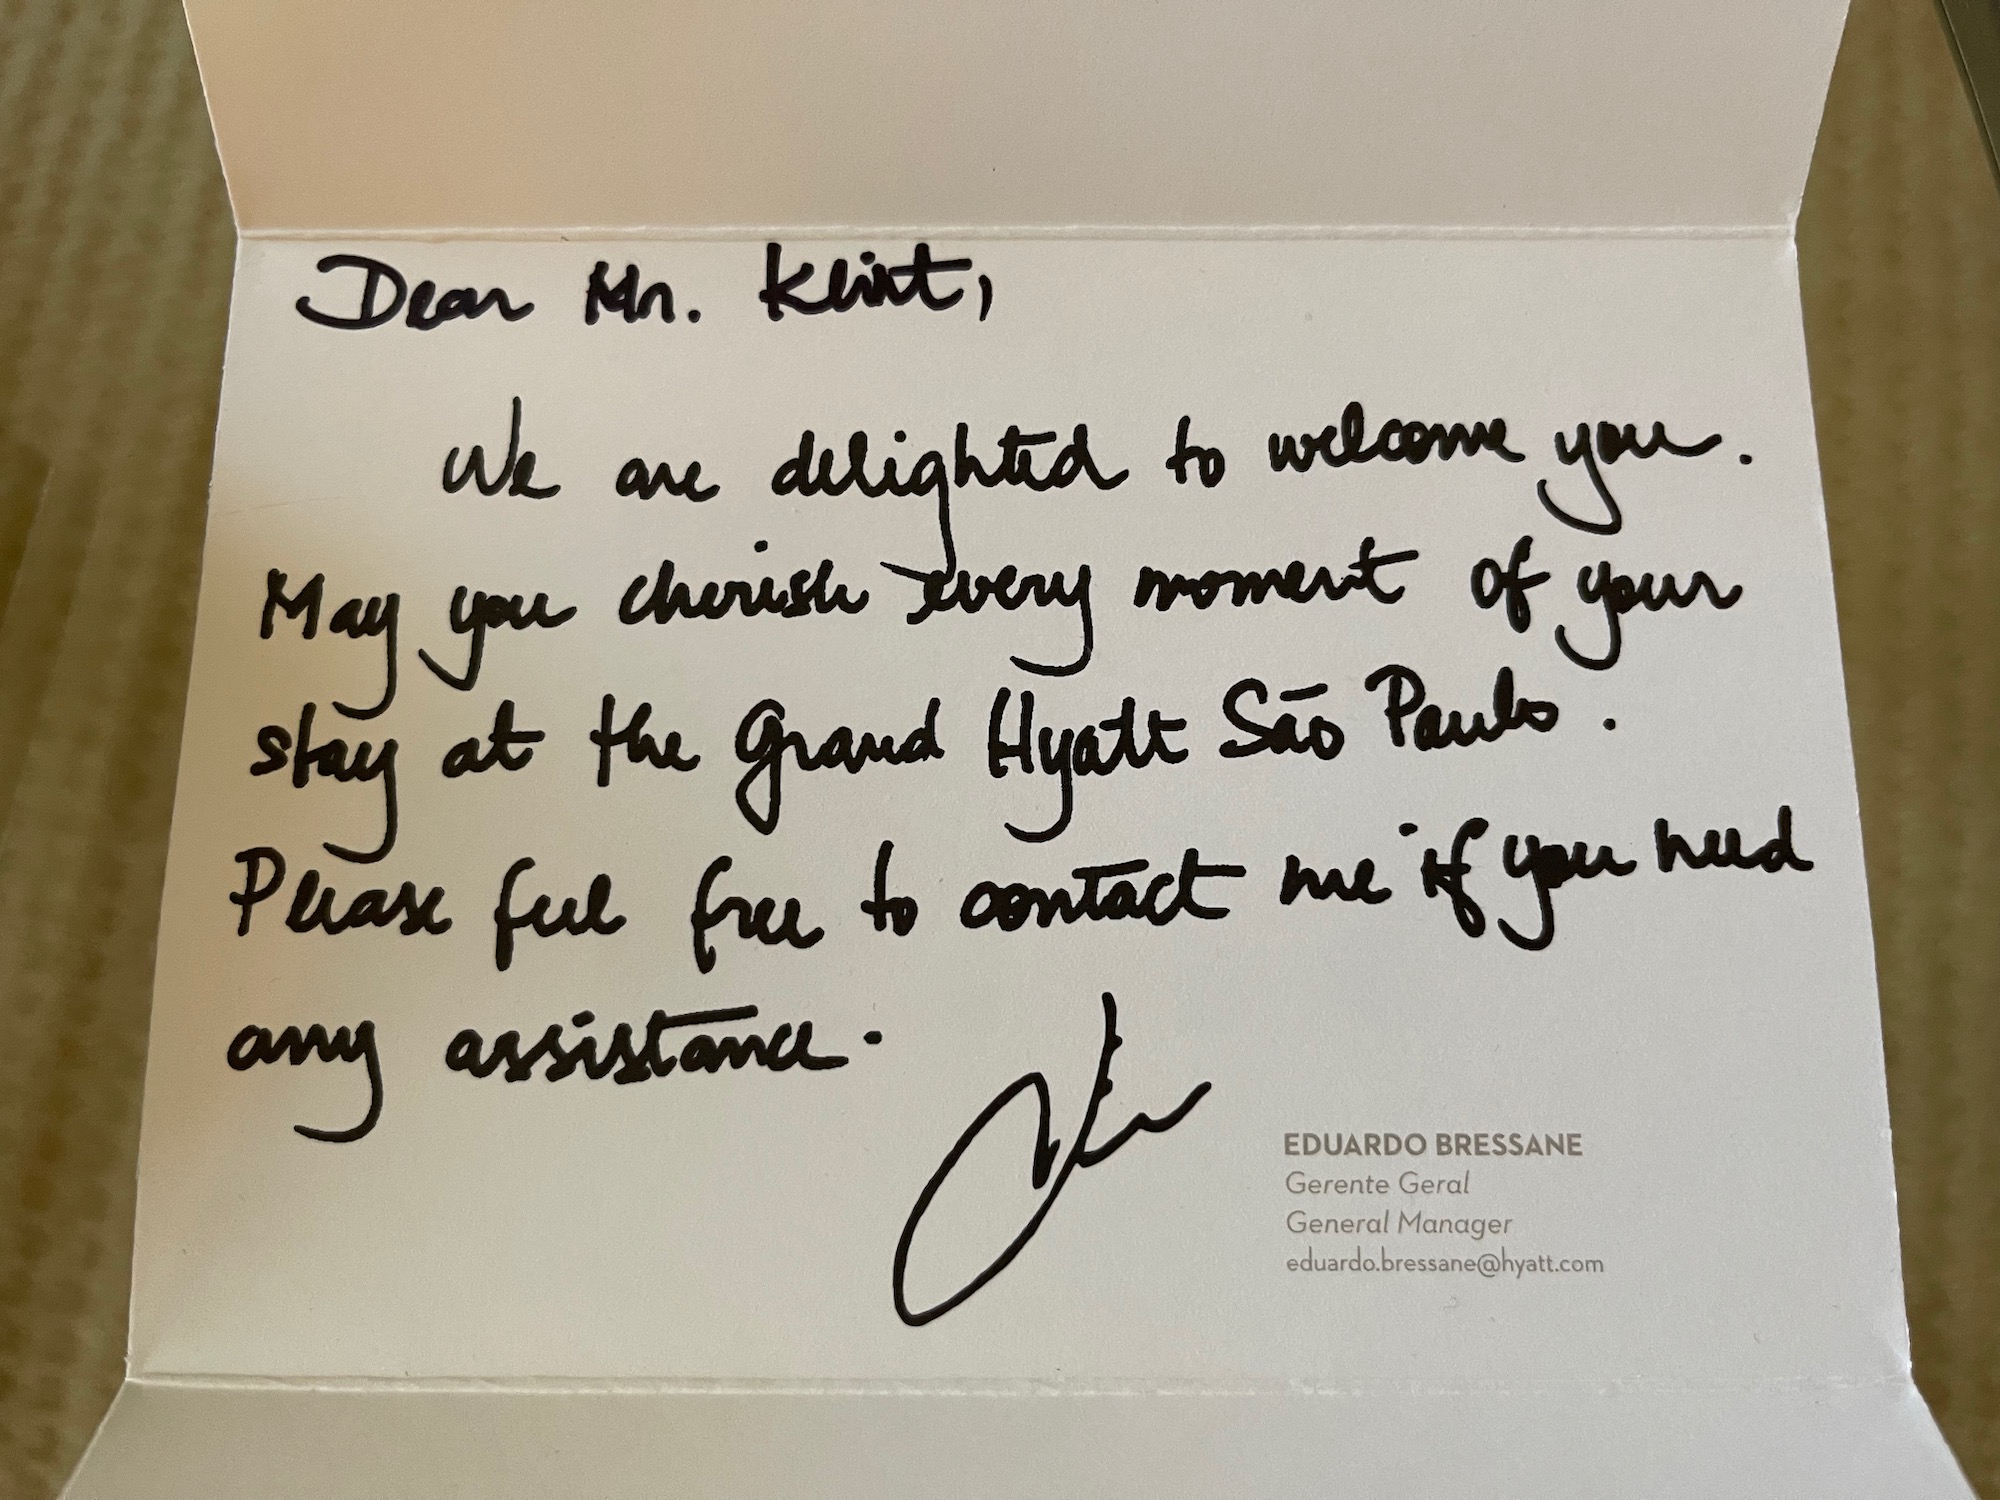 Dear Mr. Klint,
We are delighted to welcome you.
May you cherish every moment of your
stay at the Grand Hyatt São Paulo.
Please feel free to contact me if you need
any assistance.
EDUARDO BRESSANE
Gerente Geral
General Manager
eduardo.bressane@hyatt.com